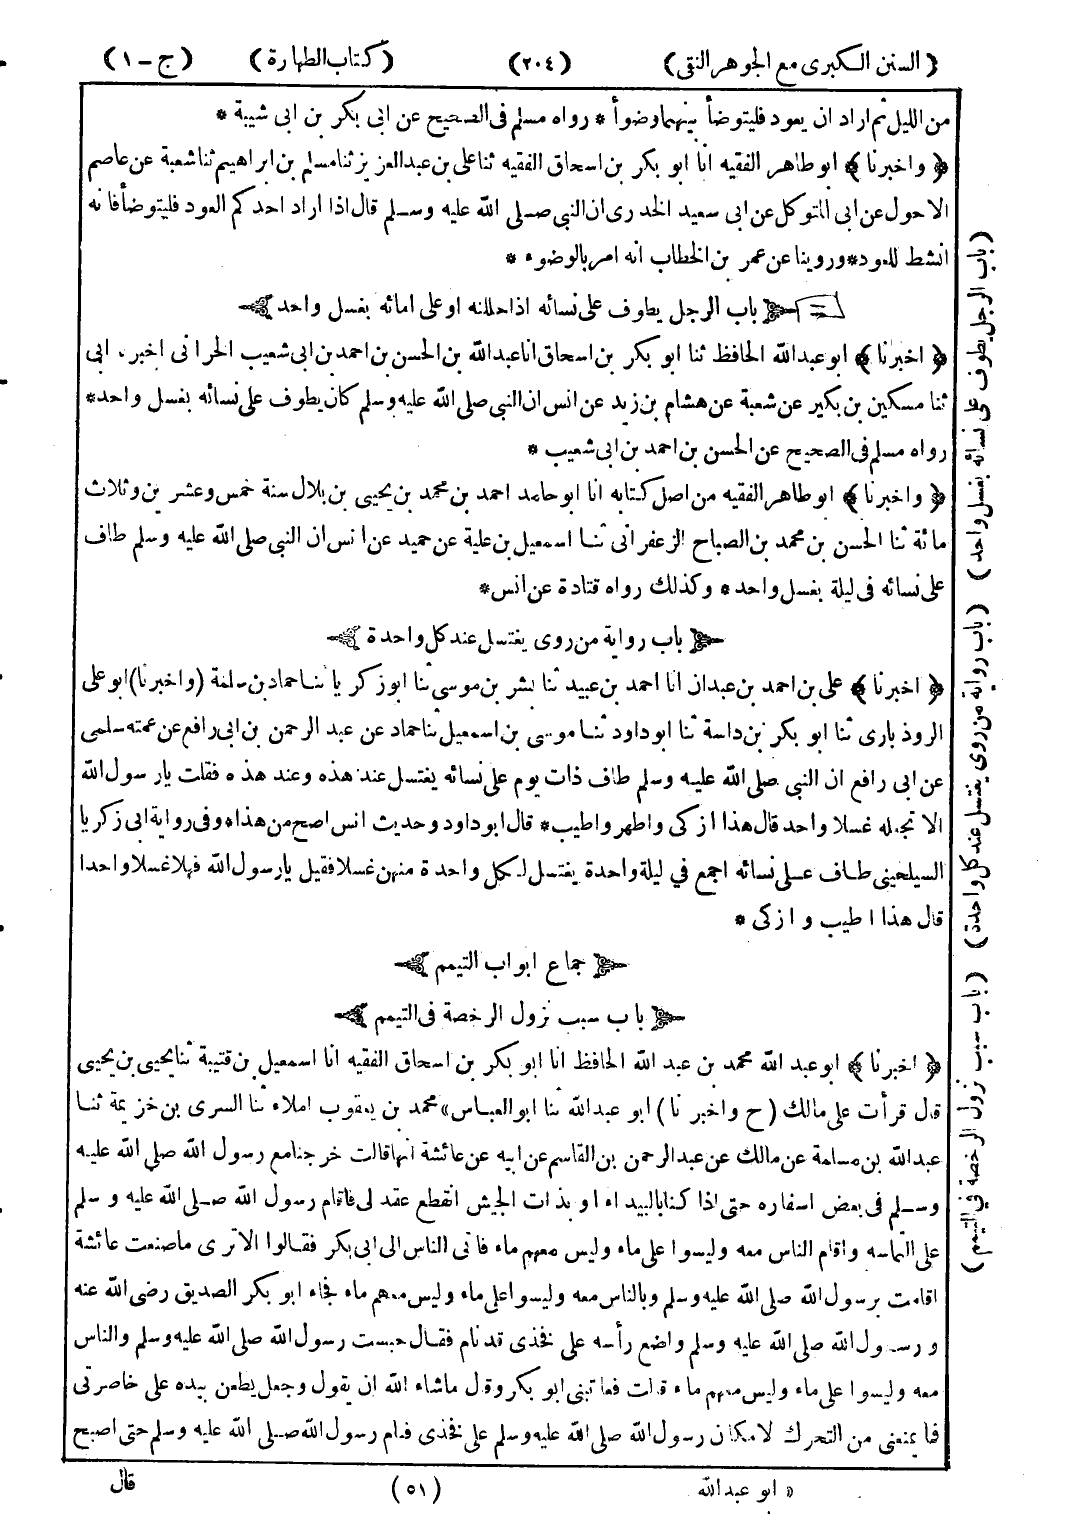 (السنن الكبرى مع الجوهر النقى) (٢٠٤) (كتاب الطهارة) (ج-١)
من الليل ثم اراد ان يعود فليتوضأ بينهما وضوأ * رواه مسلم فى الصحيح عن ابى بكر بن ابى شيبة *
﴿ واخبرنا ﴾ ابو طاهر الفقيه انا ابو بكر بن اسحاق الفقيه ثنا على بن عبدالعزيز ثنا مسلم بن ابراهيم ثنا شعبة عن عاصم
الاحول عن ابى المتوكل عن ابى سعيد الخدرى ان النبى صلى الله عليه وسلم قال اذا اراد احدكم العود فليتوضأ فانه
انشط للعود* وروينا عن عمر بن الخطاب انه امر بالوضوء *
باب الرجل يطوف على نسائه اذا حللنه او على امائه بغسل واحد
﴿ اخبرنا ﴾ ابو عبدالله الحافظ ثنا ابو بكر بن اسحاق انا عبدالله بن الحسن بن احمد بن ابى شعيب الحرانى اخبر، ابى
ثنا مسكين بن بكير عن شعبة عن هشام بن زيد عن انس ان النبى صلى الله عليه وسلم كان يطوف على نسائه بغسل واحد*
رواه مسلم فى الصحيح عن الحسن بن احمد بن ابى شعيب *
﴿ واخبرنا ﴾ ابو طاهر الفقيه من اصل كتابه انا ابو حامد احمد بن محمد بن يحيى بن بلال سنة خمس وعشرين وثلاث
مائة ثنا الحسن بن محمد بن الصباح الزعفرانى ثنا اسمعيل بن علية عن حميد عن انس ان النبى صلى الله عليه وسلم طاف
على نسائه فى ليلة بغسل واحد * وكذلك رواه قتادة عن انس*
باب رواية من روى يغتسل عند كل واحدة
﴿ اخبرنا ﴾ على بن احمد بن عبدان انا احمد بن عبيد ثنا بشر بن موسى ثنا ابو زكريا ثنا حماد بن سلمة (واخبرنا) ابو على
الروذبارى ثنا ابو بكر بن داسة ثنا ابو داود ثنا موسى بن اسمعيل ثنا حماد عن عبد الرحمن بن ابى رافع عن عمته سلمى
عن ابى رافع ان النبى صلى الله عليه وسلم طاف ذات يوم على نسائه يغتسل عند هذه وعند هذه فقلت يارسول الله
الا تجعله غسلا واحد قال هذا ازكى واطهر واطيب* قال ابو داود وحديث انس اصح من هذا* وفى رواية ابى زكريا
السيلحينى طاف على نسائه اجمع في ليلة واحدة يغتسل لكل واحدة منهن غسلا فقيل يارسول الله فهلا غسلا واحدا
قال هذا اطيب وازكى *
جماع ابواب التيمم
باب سبب نزول الرخصة فى التيمم
﴿ اخبرنا ﴾ ابو عبد الله محمد بن عبد الله الحافظ انا ابو بكر بن اسحاق الفقيه انا اسمعيل بن قتيبة ثنا يحيى بن يحيى
قال قرأت على مالك (ح واخبرنا) ابو عبدالله ثنا ابو العباس» محمد بن يعقوب املاء ثنا السرى بن خزيمة ثنا
عبدالله بن مسلمة عن مالك عن عبدالرحمن بن القاسم عن ابيه عن عائشة انها قالت خرجنا مع رسول الله صلى الله عليه
وسلم فى بعض اسفاره حتى اذا كنا بالبيداء او بذات الجيش انقطع عقد لى فاقام رسول الله صلى الله عليه وسلم
على التماسه واقام الناس معه وليسوا على ماء وليس معهم ماء فاتى الناس الى ابى بكر فقالوا الا ترى ماصنعت عائشة
اقامت برسول الله صلى الله عليه وسلم وبالناس معه وليسوا على ماء وليس معهم ماء فجاء ابو بكر الصديق رضى الله عنه
ورسول الله صلى الله عليه وسلم واضع رأسه على فخذى قد نام فقال حبست رسول الله صلى الله عليه وسلم والناس
معه وليسوا على ماء وليس معهم ماء قالت فعاتبنى ابو بكر وقال ماشاء الله ان يقول وجعل يطعن بيده على خاصرتى
فما يمنعنى من التحرك لا مكان رسول الله صلى الله عليه وسلم على فخذى فنام رسول الله صلى الله عليه وسلم حتى اصبح
(باب الرجل يطوف على نسائه بغسل واحد) (باب رواية من روى يغتسل عند كل واحدة) (باب سبب نزول الرخصة فى التيمم)
» ابو عبدالله (٥١) قال